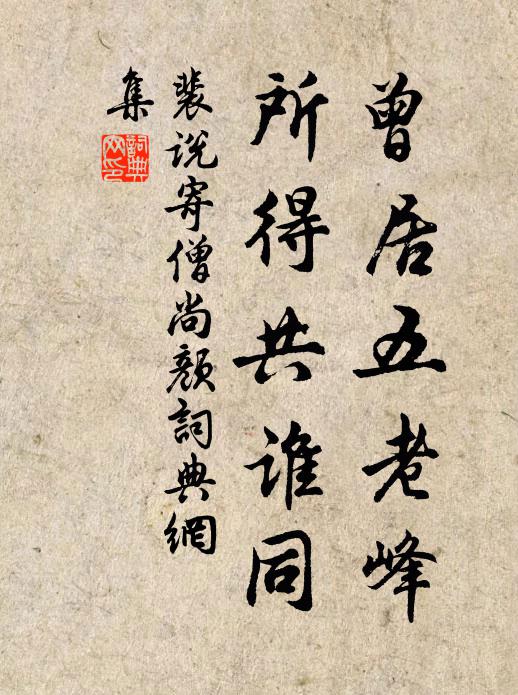 曾居五老峰
所得共谁同
裴说寄僧尚颜詞典網
集
詞典
网印